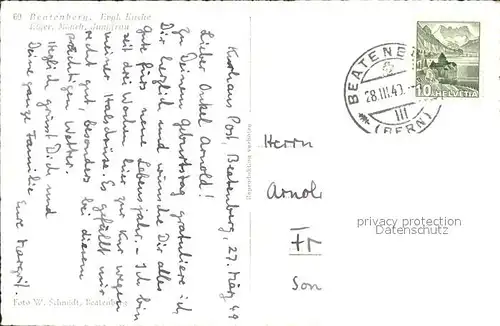 60 Beatenberg. Engl. Kirche
Eiger, Mönch, Jungfrau
Kurhaus Post, Beatenberg, 27. März 49
Lieber Onkel Arnold!
Zu Deinem Geburtstag gratuliere ich
Dir herzlich und wünsche Dir alles
Gute fürs neue Lebensjahr. - Ich bin
seit drei Wochen hier zur Kur wegen
meiner Halsdrüse. Es gefällt mir
recht gut, besonders bei diesem
prächtigen Wetter.
Herzlich grüsst Dich und
Deine ganze Familie
Eure Margrit.
Foto W. Schmidt, Beatenberg
Reproduktion verboten
BEATENB
28.III.49.
III
(BERN)
10 HELVETIA
Herrn
Arnol
Fr
Son
privacy protection
Datenschutz